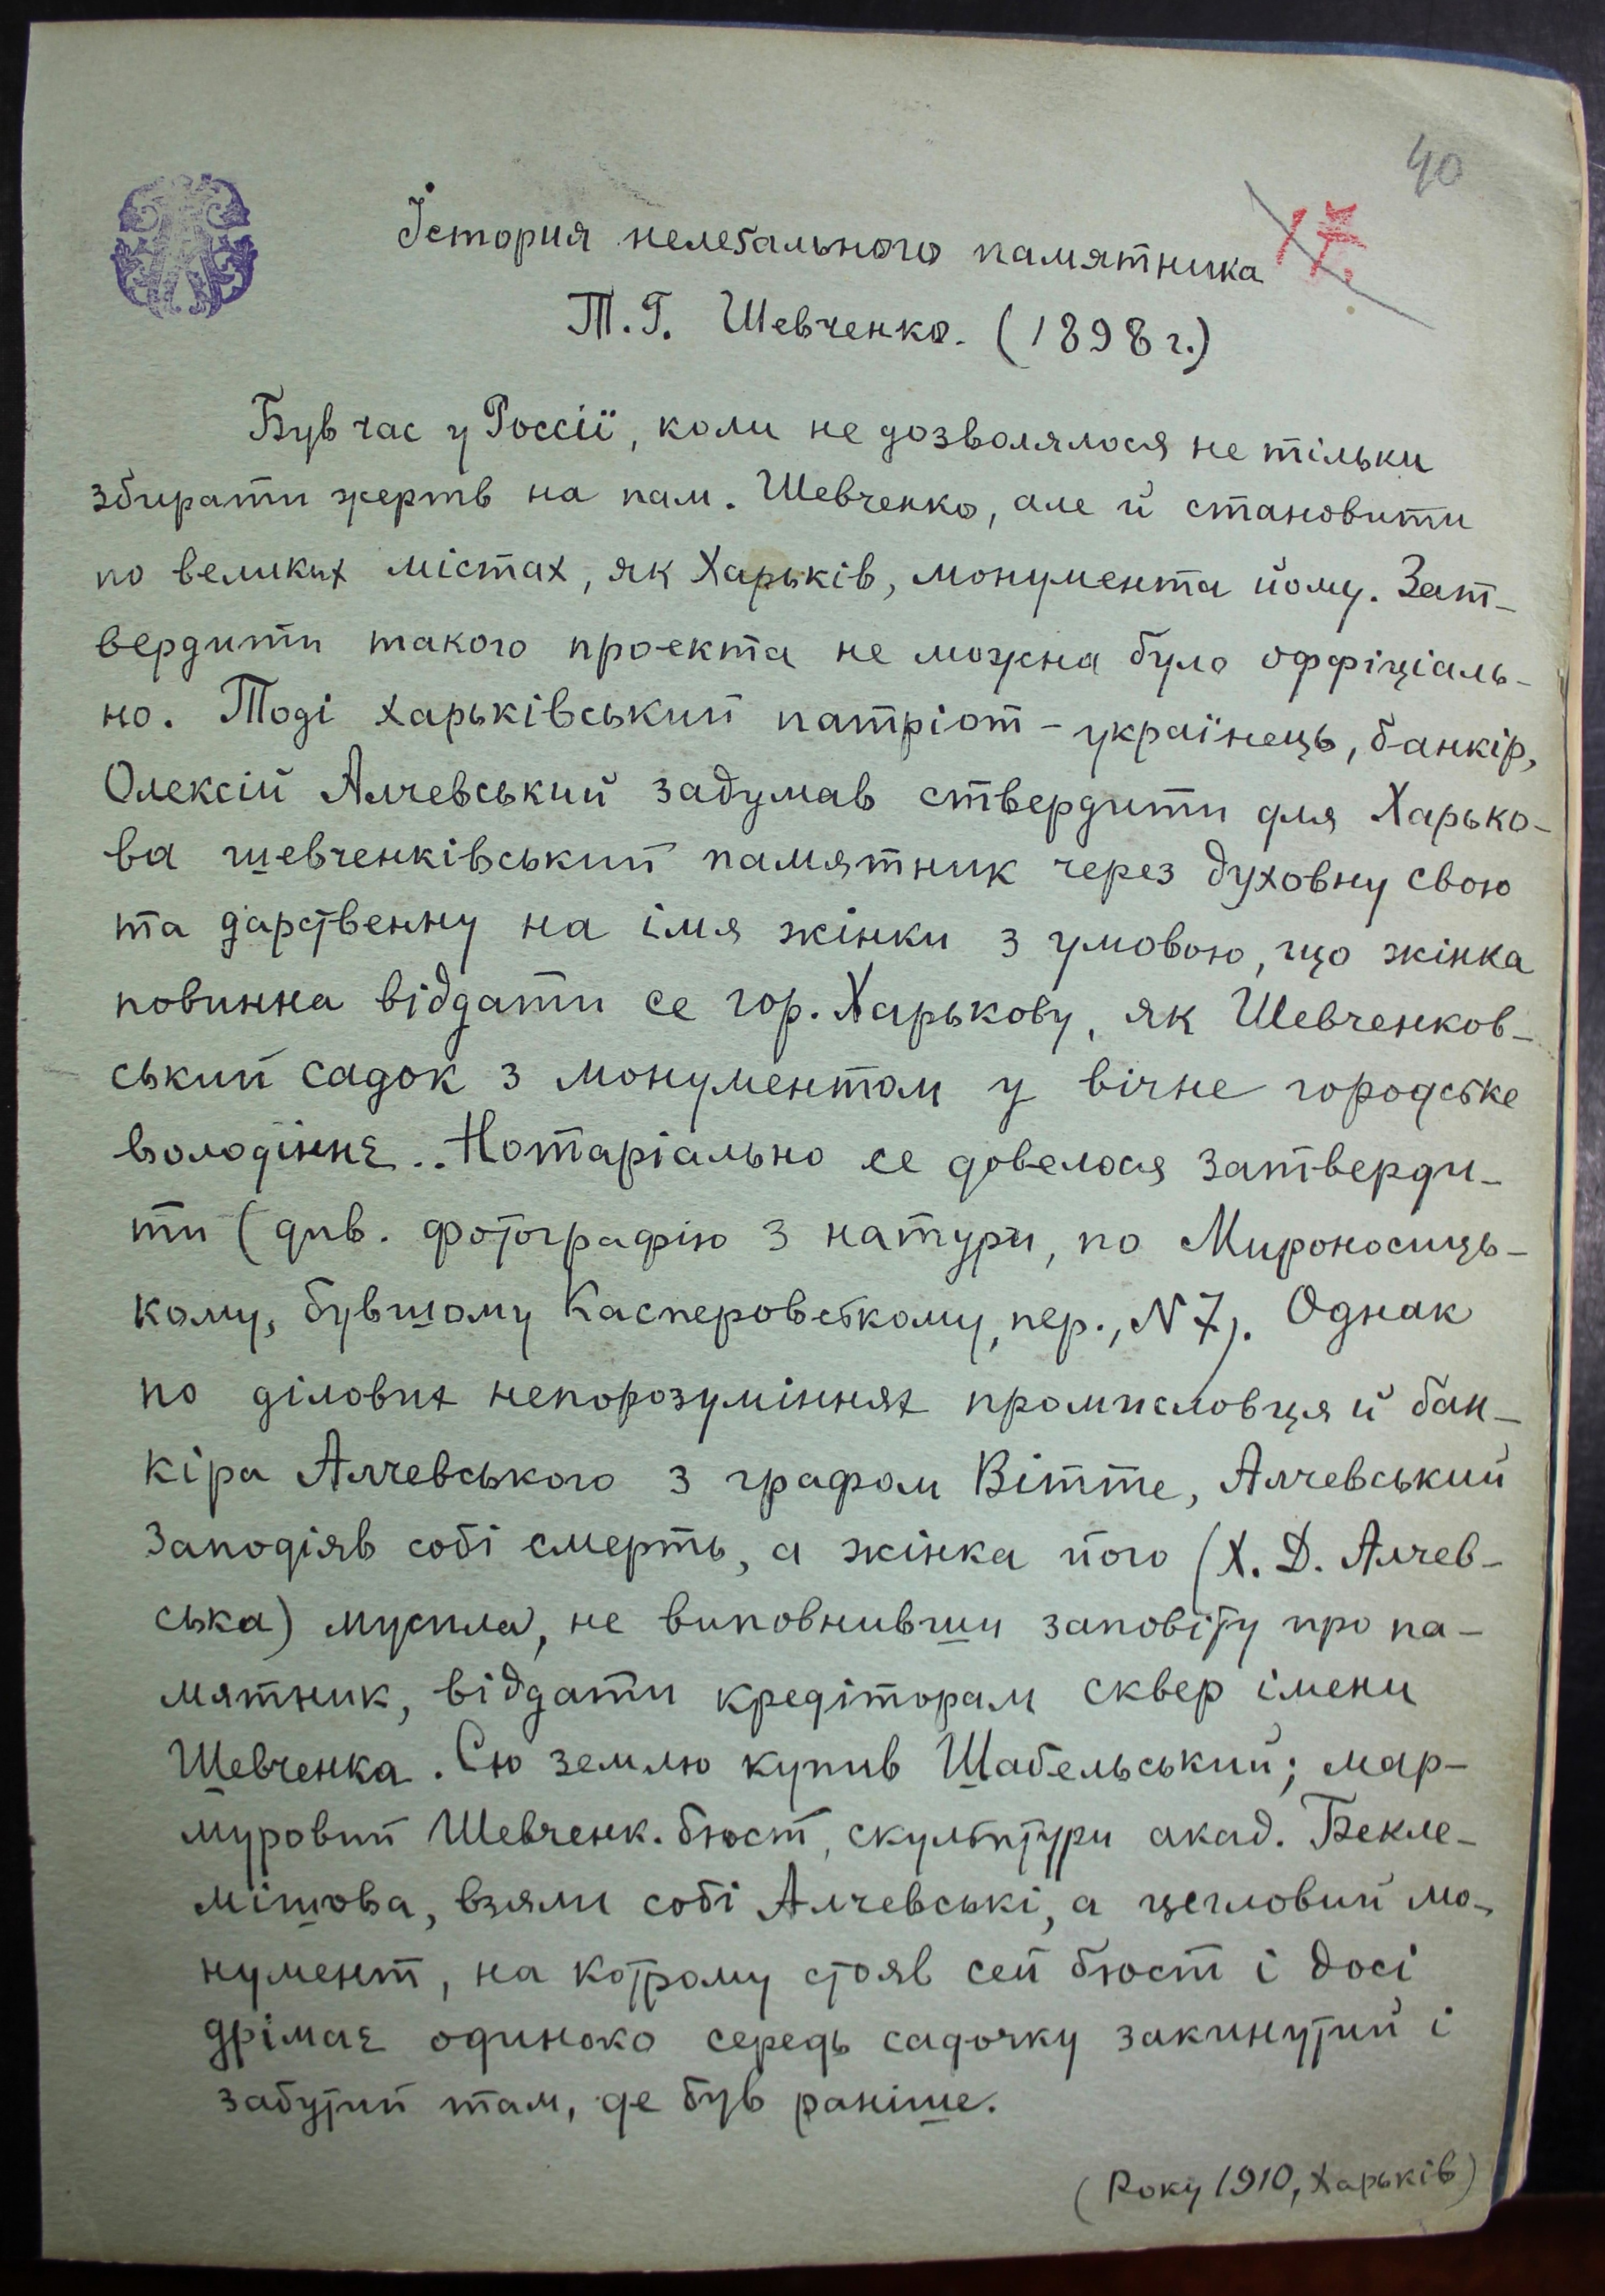 40
Істория нелегального памятника
17
Т. Г. Шевченко. (1898 г.)
Був час у Россії, коли не дозволялося не тільки
збирати жертв на пам. Шевченко, але й становити
по великих містах, як Харьків, монумента йому. Зат-
вердити такого проекта не можна було оффіціаль-
но. Тоді харьківський патріот-українець, банкір,
Олексій Алчевський задумав ствердити для Харько-
ва шевченківський памятник через духовну свою
та дарственну на імя жінки з умовою, що жінка
повинна віддати се гор. Харькову, як Шевченков-
ський садок з монументом у вічне городське
володіннє.. Нотаріально се довелося затверди-
ти (див. фотографію з натури, по Мироносиць-
кому, бувшому Касперовському, пер., N 7). Однак
по ділових непорозуміннях промисловця й бан-
кіра Алчевського з графом Вітте, Алчевський
заподіяв собі смерть, а жінка його (Х. Д. Алчев-
ська) мусила, не виповнивши заповіту про па-
мятник, віддати кредіторам сквер імени
Шевченка. Сю землю купив Шабельський; мар-
муровий Шевченк. бюст, скульптури акад. Бекле-
мішова, взяли собі Алчевські, а цегловий мо-
нумент, на котрому стояв сей бюст і досі
дрімає одиноко середь садочку закинутий і
забутий там, де був раніше.
(Року 1910, Харьків)